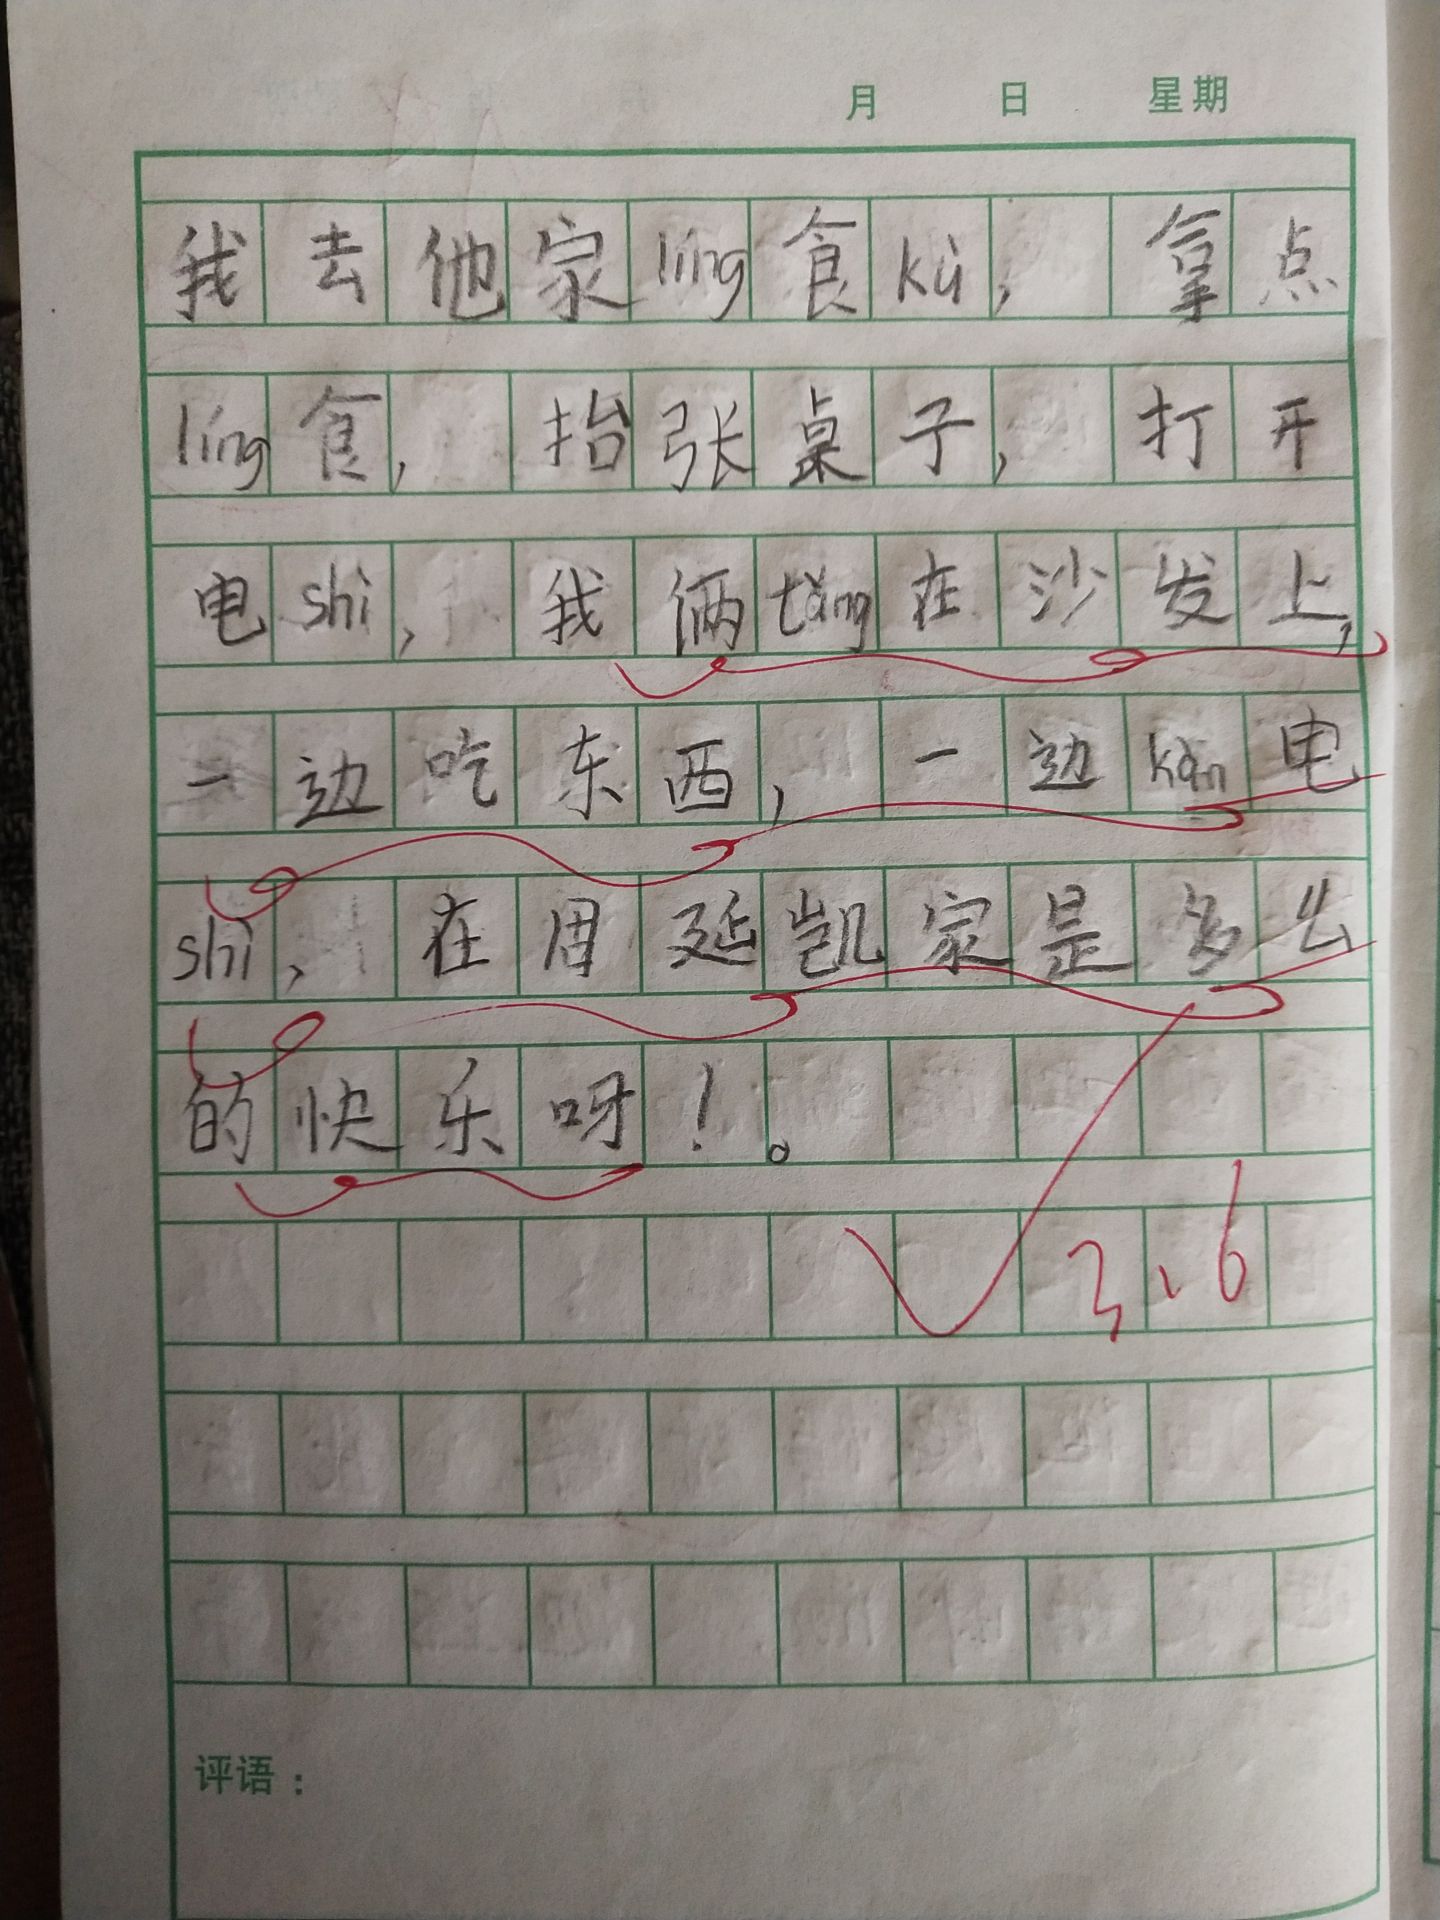 月 日 星期
我去他家líng食kù，拿点
líng食，抬张桌子，打开
电shì，我俩tǎng在沙发上，
一边吃东西，一边kàn电
shì，在周延凯家是多么
的快乐呀！。
3、6
评语：